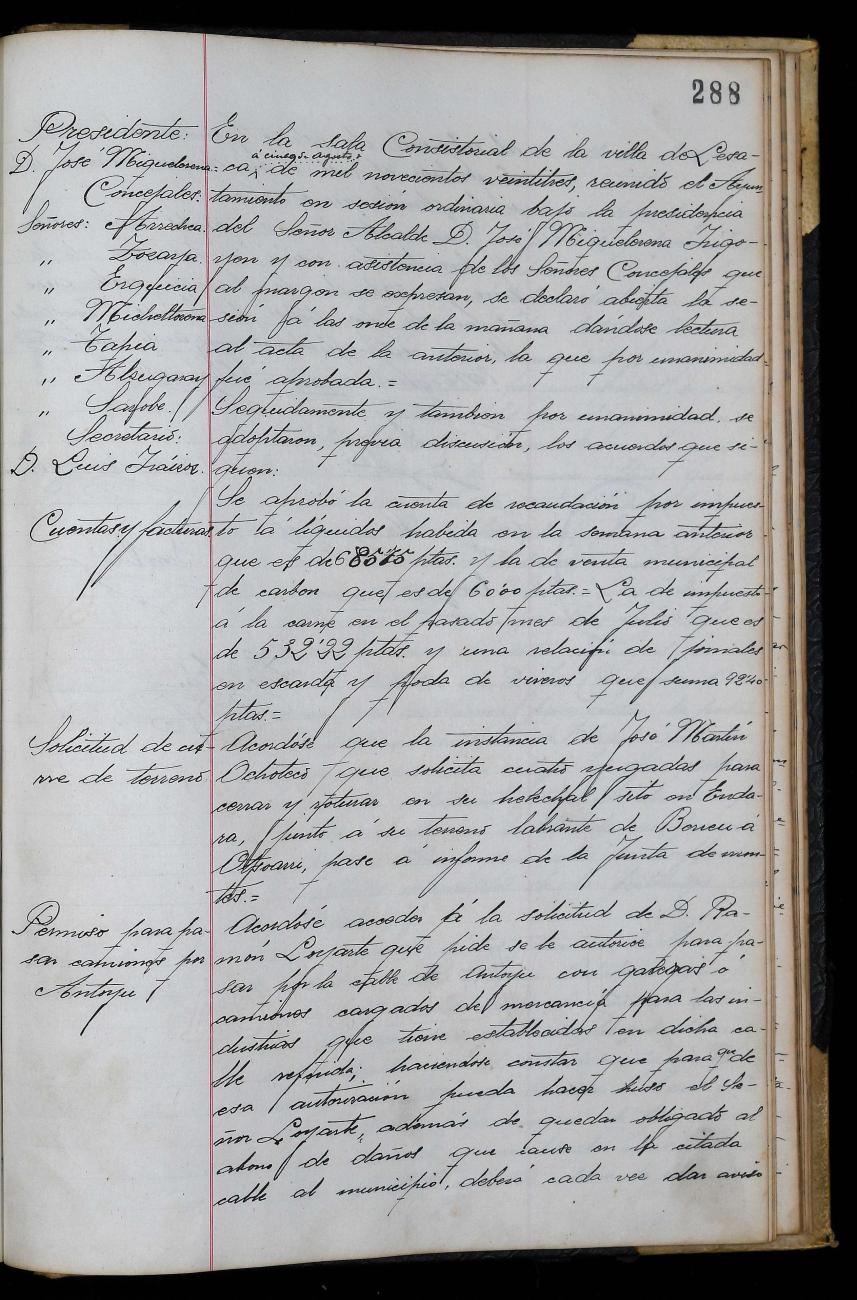 288
Presidente:
D. José Miguelorena
Concejales:
Señores: Arrechea.
" Zocaya.
" Erquicia
" Michelltorena
" Tapea
" Alzugaray
" Sarobe.
Secretario:
D. Luis Iráizoz.
En la sala Consistorial de la villa de Lesa-
á cinco de agosto
ca, de mil novecientos veintitres, reunido el Ayun-
tamiento en sesión ordinaria bajo la presidencia
del Señor Alcalde D. José Miguelorena Irigo-
yen y con asistencia de los Señores Concejales que
al margen se expresan, se declaró abierta la se-
sión á las once de la mañana dándose lectura
al acta de la anterior, la que por unanimidad
fué aprobada.=
Seguidamente y tambien por unanimidad, se
adoptaron, previa discusión, los acuerdos que si-
guen:
Cuentas y facturas
Se aprobó la cuenta de recaudación por impues-
to á líquidos habida en la semana anterior
que es de ptas. y la de venta municipal
de carbon que es de 60'00 ptas.= La de impuesto
á la carne en el pasado mes de Julio que es
de 532'22 ptas. y una relación de jornales
en escarda y poda de viveros que suma 92'40
ptas.=
Solicitud de cie-
rre de terreno
Acordóse que la instancia de José Martín
Ochoteco que solicita cuatro yugadas para
cerrar y roturar en su helechal sito en Enda-
ra, junto á su terreno labrante de Borcu á
Otsoarri, pase á informe de la Junta de mon-
tes.=
Permiso para pa-
sar camiones por
Antoyu
Acordóse acceder á la solicitud de D. Ra-
món Loyarte que pide se le autorice para pa-
sar por la calle de Antoyu con galeras ó
camiones cargados de mercancía para las in-
dustrias que tiene establecidas en dicha ca-
lle referida; haciendose constar que para que de
esa autorización pueda hacer huso el Se-
ñor Loyarte, además de quedar obligado al
abono de daños que cause en la citada
calle al municipio, deberá cada vez dar aviso